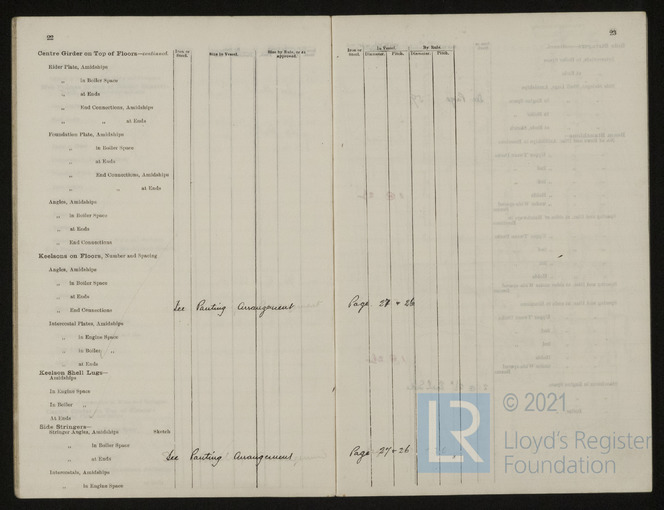 22
23
Centre Girder on Top of Floors—continued.
Iron or Steel.
Size in Vessel.
Size by Rule, or as approved.
Iron or Steel.
In Vessel.
By Rule.
Diameter.
Pitch.
Diameter.
Pitch.
Rider Plate, Amidships
„ in Boiler Space
„ at Ends
„ End Connections, Amidships
„ „ at Ends
Foundation Plate, Amidships
„ in Boiler Space
„ at Ends
„ End Connections, Amidships
„ „ at Ends
Angles, Amidships
„ in Boiler Space
„ at Ends
„ End Connections
Keelsons on Floors, Number and Spacing
Angles, Amidships
„ in Boiler Space
„ at Ends
„ End Connections See Panting Arrangement Page 27 + 26
Intercostal Plates, Amidships
„ in Engine Space
„ in Boiler „
„ at Ends
Keelson Shell Lugs—
Amidships
In Engine Space
In Boiler „
At Ends
Side Stringers—
Stringer Angles, Amidships Sketch
„ in Boiler Space
„ at Ends See Panting Arrangement Page 27 + 26
Intercostals, Amidships
„ in Engine Space
LR
© 2021
Lloyd's Register
Foundation